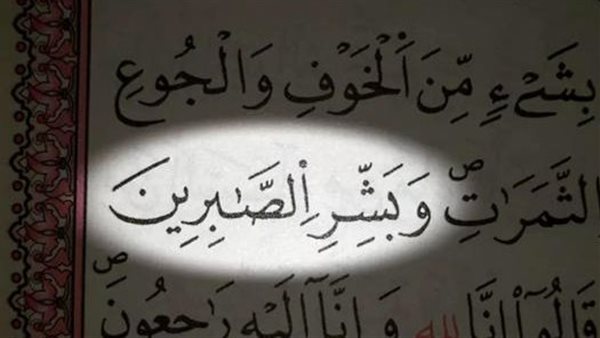 بِشَيْءٍ مِّنَ الْخَوْفِ وَالْجُوعِ
الثَّمَرَاتِ ۗ وَبَشِّرِ الصَّابِرِينَ
قَالُوا إِنَّا لِلَّهِ وَإِنَّا إِلَيْهِ رَاجِعُونَ